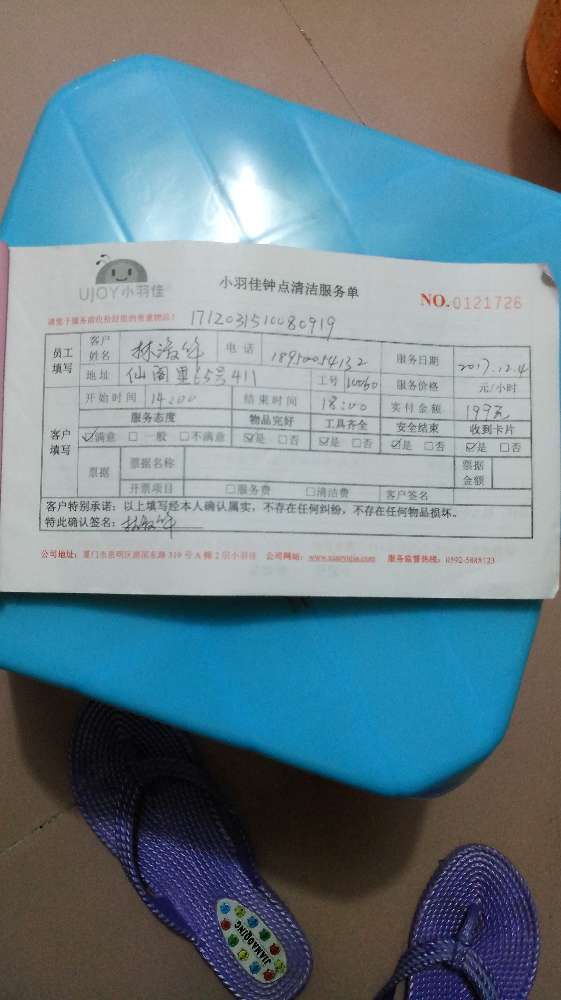 UJOY小羽佳
小羽佳钟点清洁服务单
NO.0121726
1712031510080919
员工填写 客户姓名 电话 18950054132 服务日期 2017.12.4
地址 仙阁里 411 工号 10060 服务价格 元/小时
开始时间 14:00 结束时间 18:00 实付金额 199元
客户填写 服务态度 物品完好 工具齐全 安全结束 收到卡片
☑满意 □一般 □不满意 ☑是 □否 ☑是 □否 ☑是 □否 ☑是 □否
票据 票据名称 票据金额
开票项目 □服务费 □清洁费 客户签名
客户特别承诺：以上填写经本人确认属实，不存在任何纠纷，不存在任何物品损坏。
特此确认签名：
公司地址：厦门市思明区湖滨东路 319 号 A 幢 2 层小羽佳 公司网站： 服务监督热线：0592-5888123
JIAHAOQING